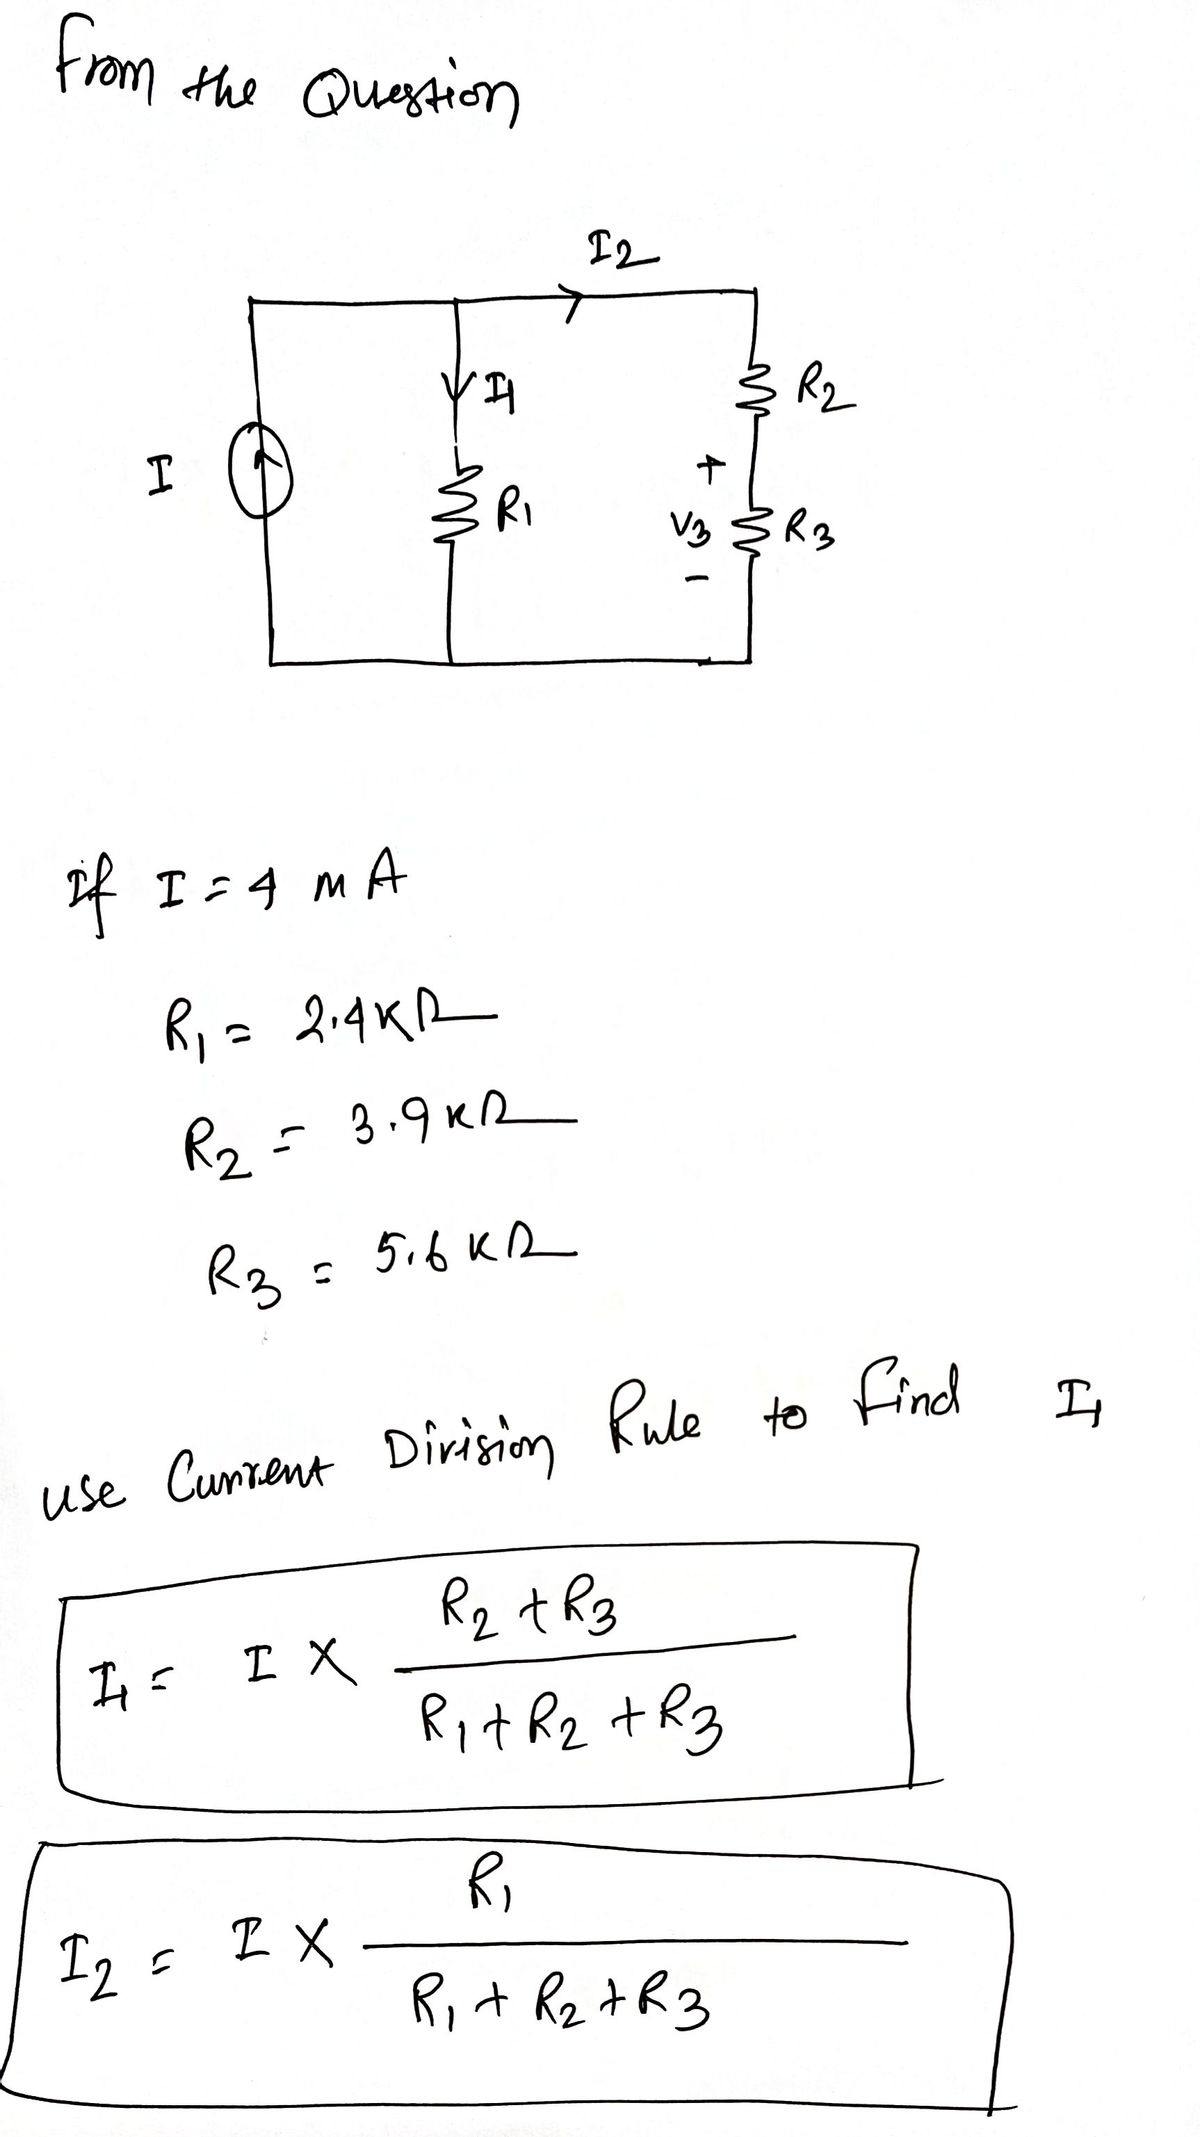 From the Question
I2
I1
R2
I
R1
+
V3
R3
-
if I = 4 mA
R1 = 2.4KΩ
R2 = 3.9KΩ
R3 = 5.6KΩ
use Current Division Rule to find I1
I1 = I X (R2 + R3) / (R1 + R2 + R3)
I2 = I X R1 / (R1 + R2 + R3)